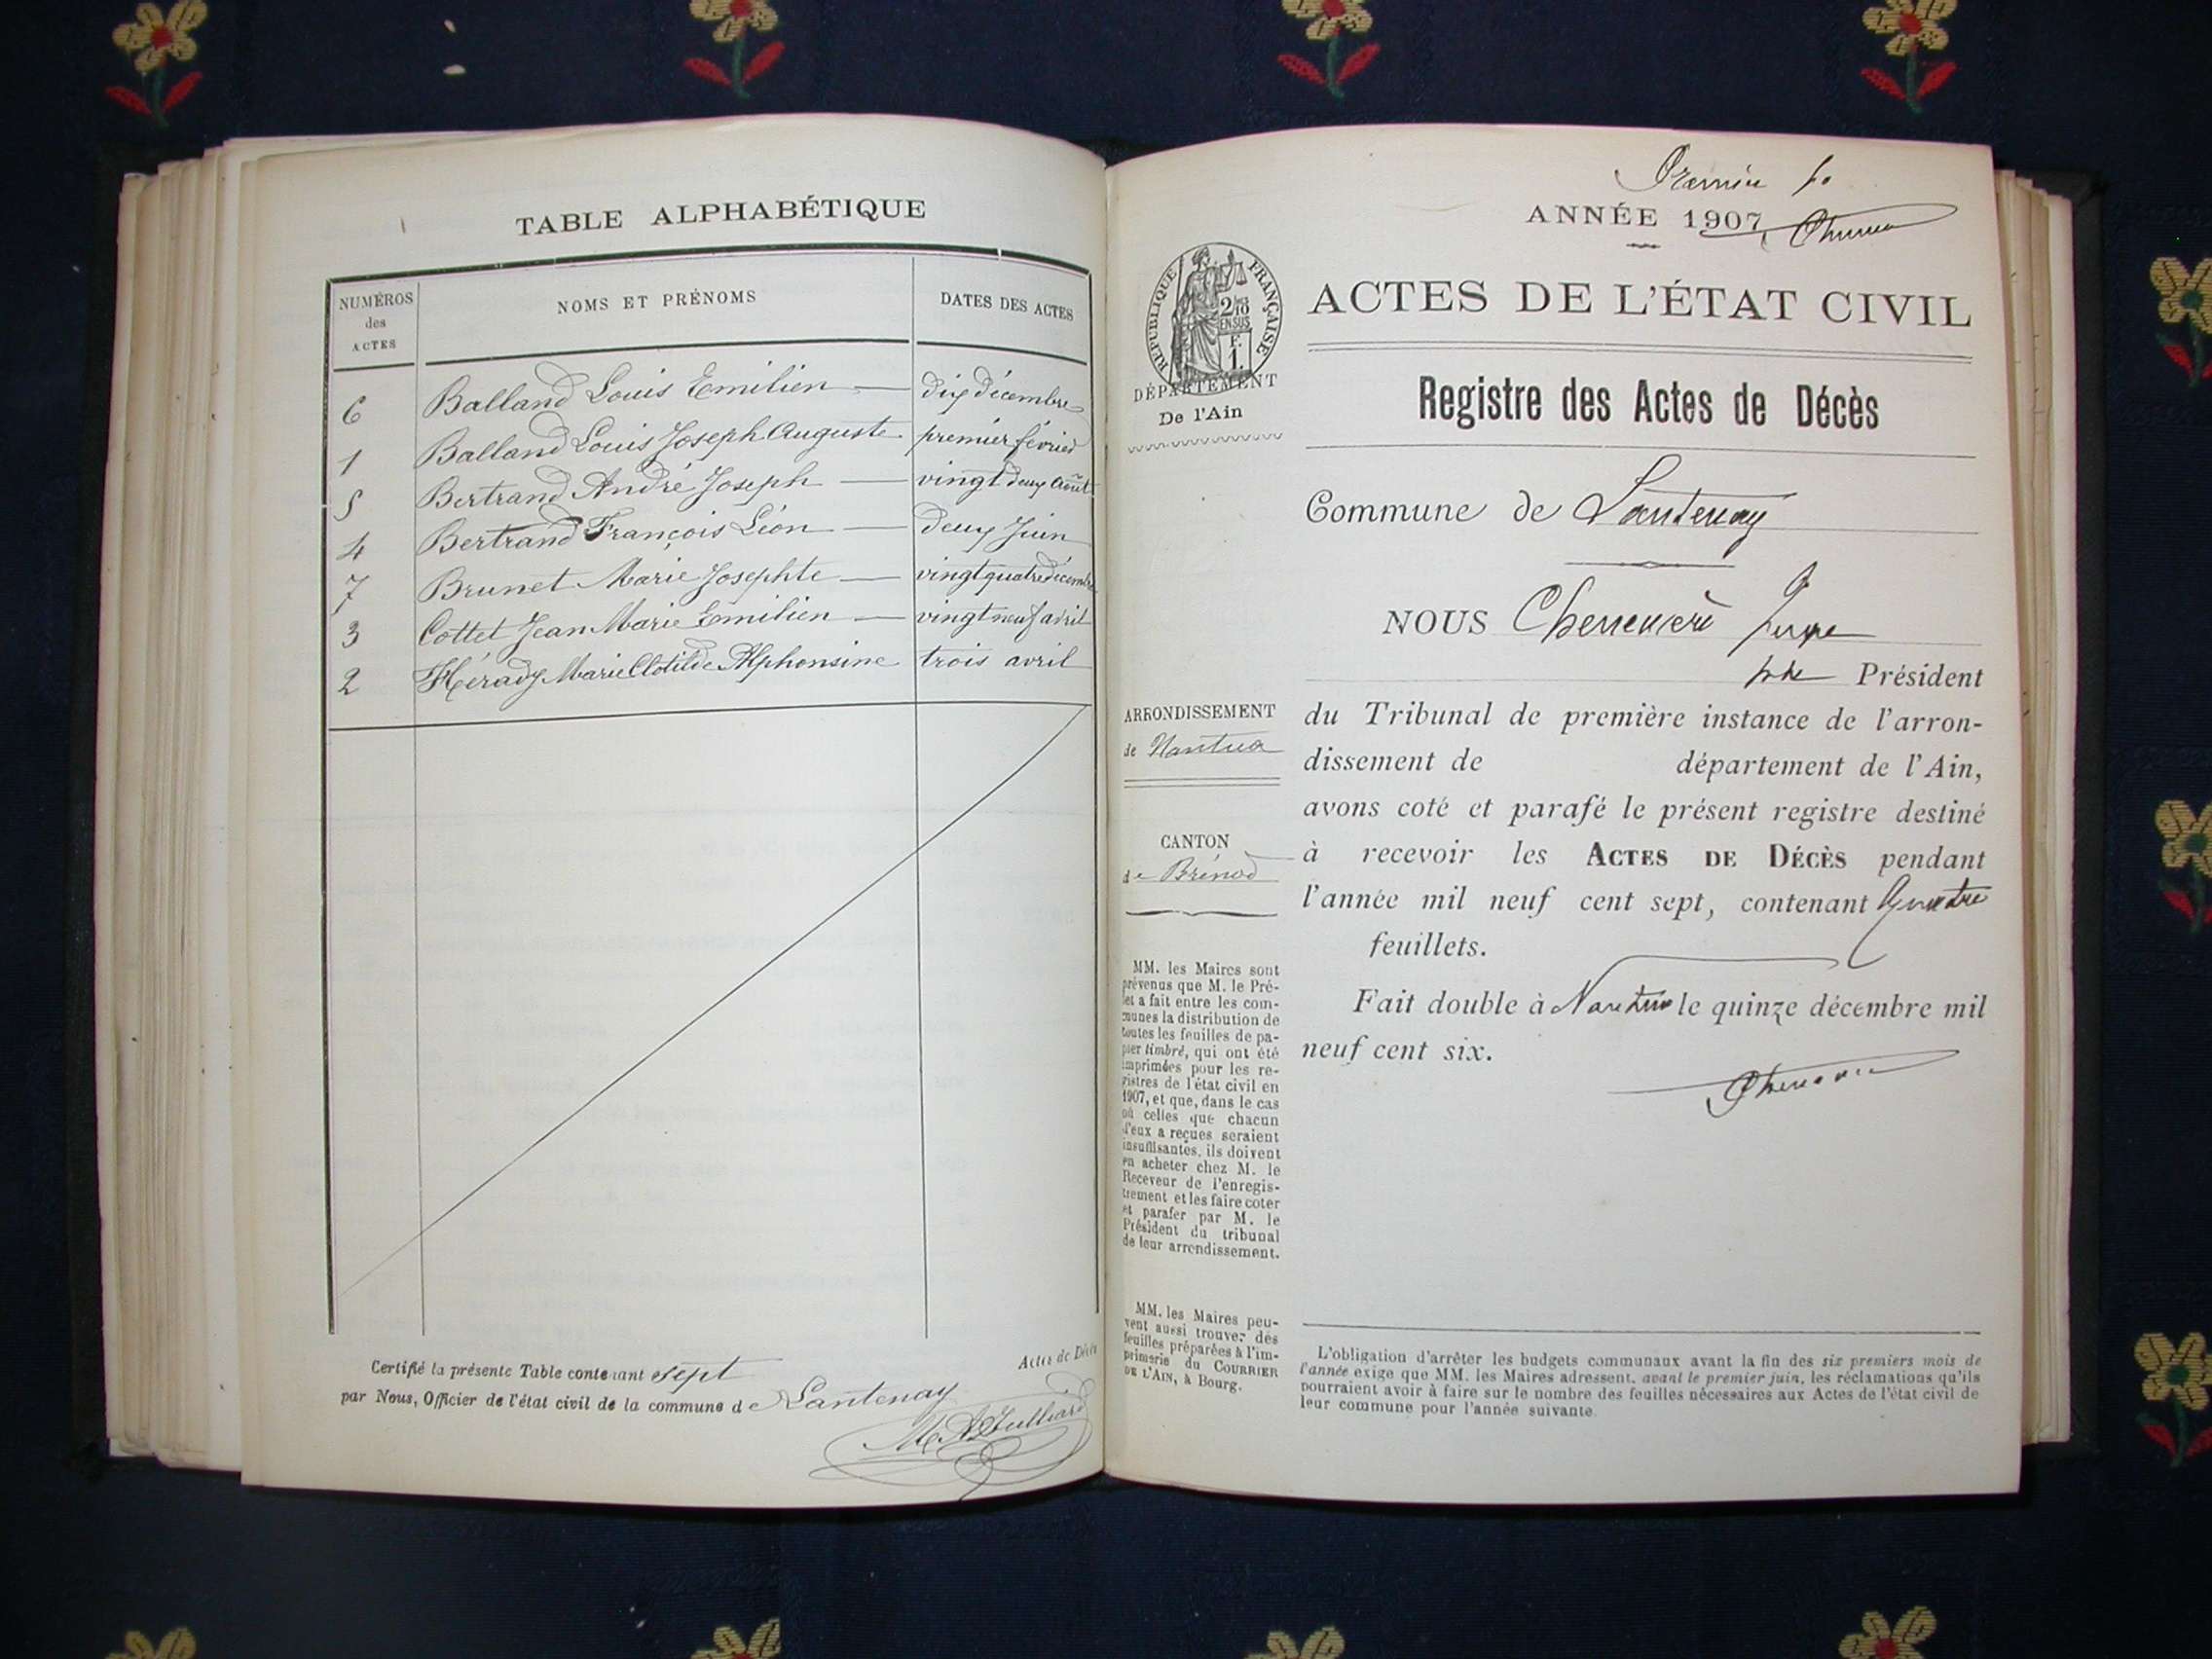 TABLE ALPHABÉTIQUE
NUMÉROS des ACTES
NOMS ET PRÉNOMS
DATES DES ACTES
6 Balland Louis Emilien — dix décembre
1 Balland Louis Joseph Auguste premier février
5 Bertrand André Joseph — vingt deux Août
4 Bertrand François Léon — deux Juin
7 Brunet Marie Josephte — vingt quatre décembre
3 Cottet Jean Marie Emilien — vingt neuf avril
2 Hérady Marie Clotilde Alphonsine trois avril
Certifié la présente Table contenant sept
Actes de Décès
par Nous, Officier de l'état civil de la commune de Lantenay
Premier fo
ANNÉE 1907
RÉPUBLIQUE FRANÇAISE
2/10 EN SUS
F. 1.
DÉPARTEMENT
De l'Ain
ARRONDISSEMENT
de Nantua
CANTON
de Brénod
MM. les Maires sont
prévenus que M. le Pré-
fet a fait entre les com-
munes la distribution de
toutes les feuilles de pa-
pier timbré, qui ont été
imprimées pour les re-
gistres de l'état civil en
1907, et que, dans le cas
où celles que chacun
d'eux a reçues seraient
insuffisantes, ils doivent
en acheter chez M. le
Receveur de l'enregis-
trement et les faire coter
et parafer par M. le
Président du tribunal
de leur arrondissement.
MM. les Maires peu-
vent aussi trouver des
feuilles préparées à l'im-
primerie du COURRIER
DE L'AIN, à Bourg.
ACTES DE L'ÉTAT CIVIL
Registre des Actes de Décès
Commune de Lantenay
NOUS Juge
Président
du Tribunal de première instance de l'arron-
dissement de département de l'Ain,
avons coté et parafé le présent registre destiné
à recevoir les ACTES DE DÉCÈS pendant
l'année mil neuf cent sept, contenant Quatre
feuillets.
Fait double à Nantua le quinze décembre mil
neuf cent six.
L'obligation d'arrêter les budgets communaux avant la fin des six premiers mois de
l'année exige que MM. les Maires adressent, avant le premier juin, les réclamations qu'ils
pourraient avoir à faire sur le nombre des feuilles nécessaires aux Actes de l'état civil de
leur commune pour l'année suivante.